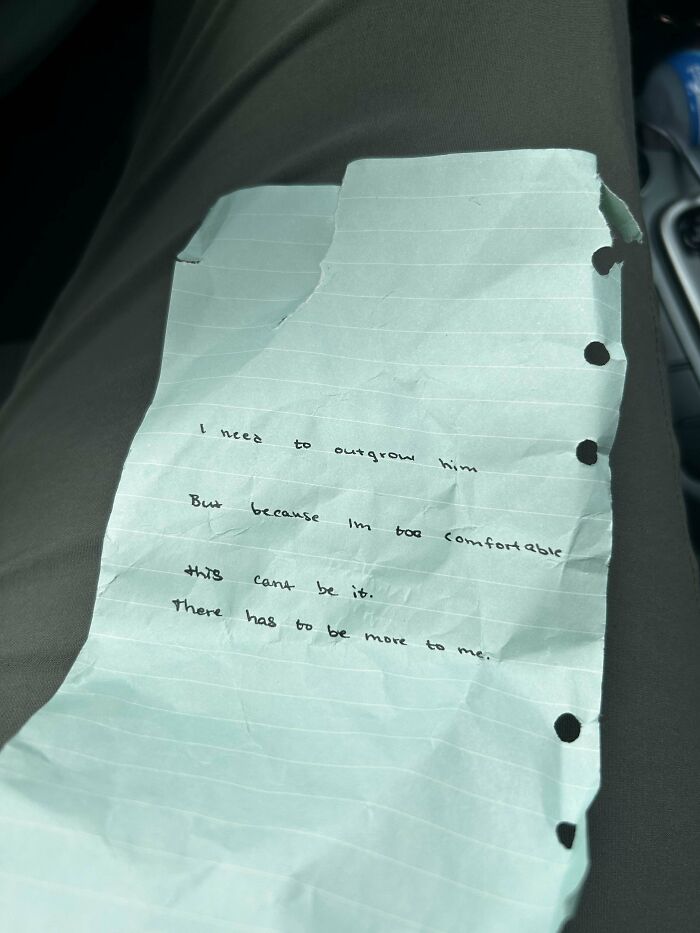 I need to outgrow him
But because Im too comfortable
this cant be it.
There has to be more to me.